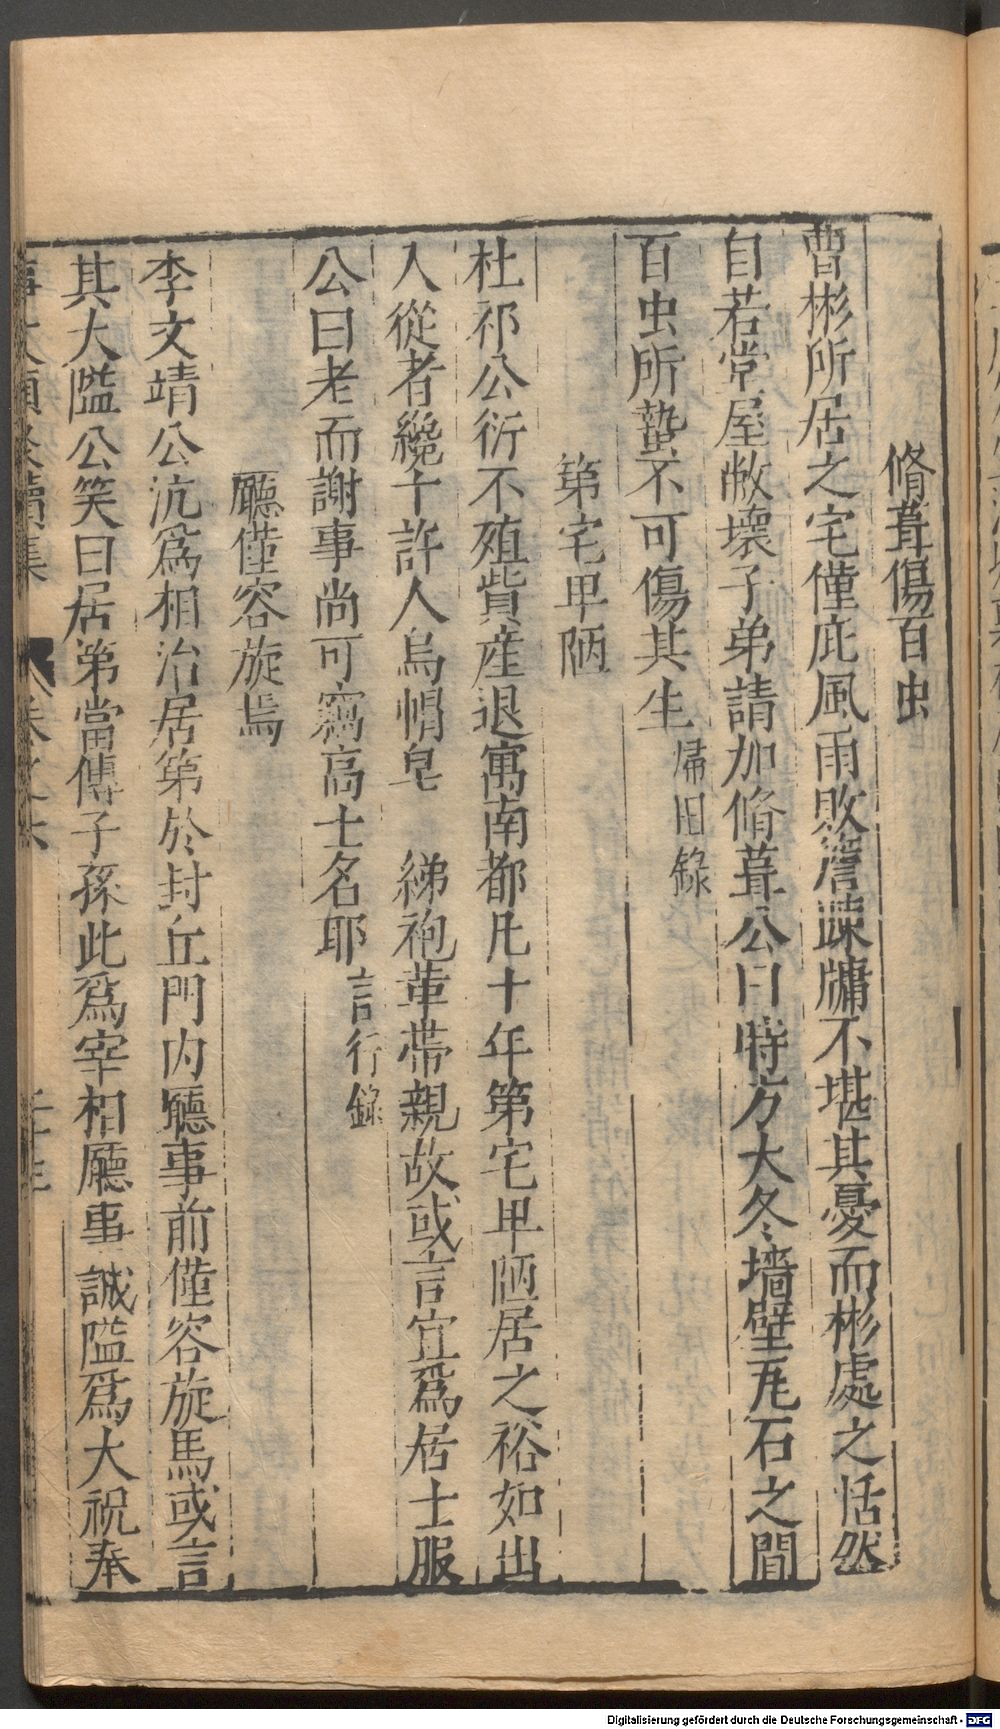 脩葺傷百虫
曹彬所居之宅僅庇風雨敗簷疎牗不堪其憂而彬處之恬然
自若堂屋敝壞子弟請加脩葺公曰時方大冬墻壁瓦石之間
百虫所蟄不可傷其生 帰田錄
第宅卑陋
杜祁公衍不殖貲産退寓南都凡十年第宅卑陋居之裕如出
入從者纔十許人烏帽皂 綈袍革帶親故或言宜爲居士服
公曰老而謝事尚可竊高士名耶 言行錄
廳僅容旋馬
李文靖公沆爲相治居第於封丘門内廳事前僅容旋馬或言
其大隘公笑曰居第當傳子孫此爲宰相廳事誠隘爲大祝奉
Digitalisierung gefördert durch die Deutsche Forschungsgemeinschaft - DFG